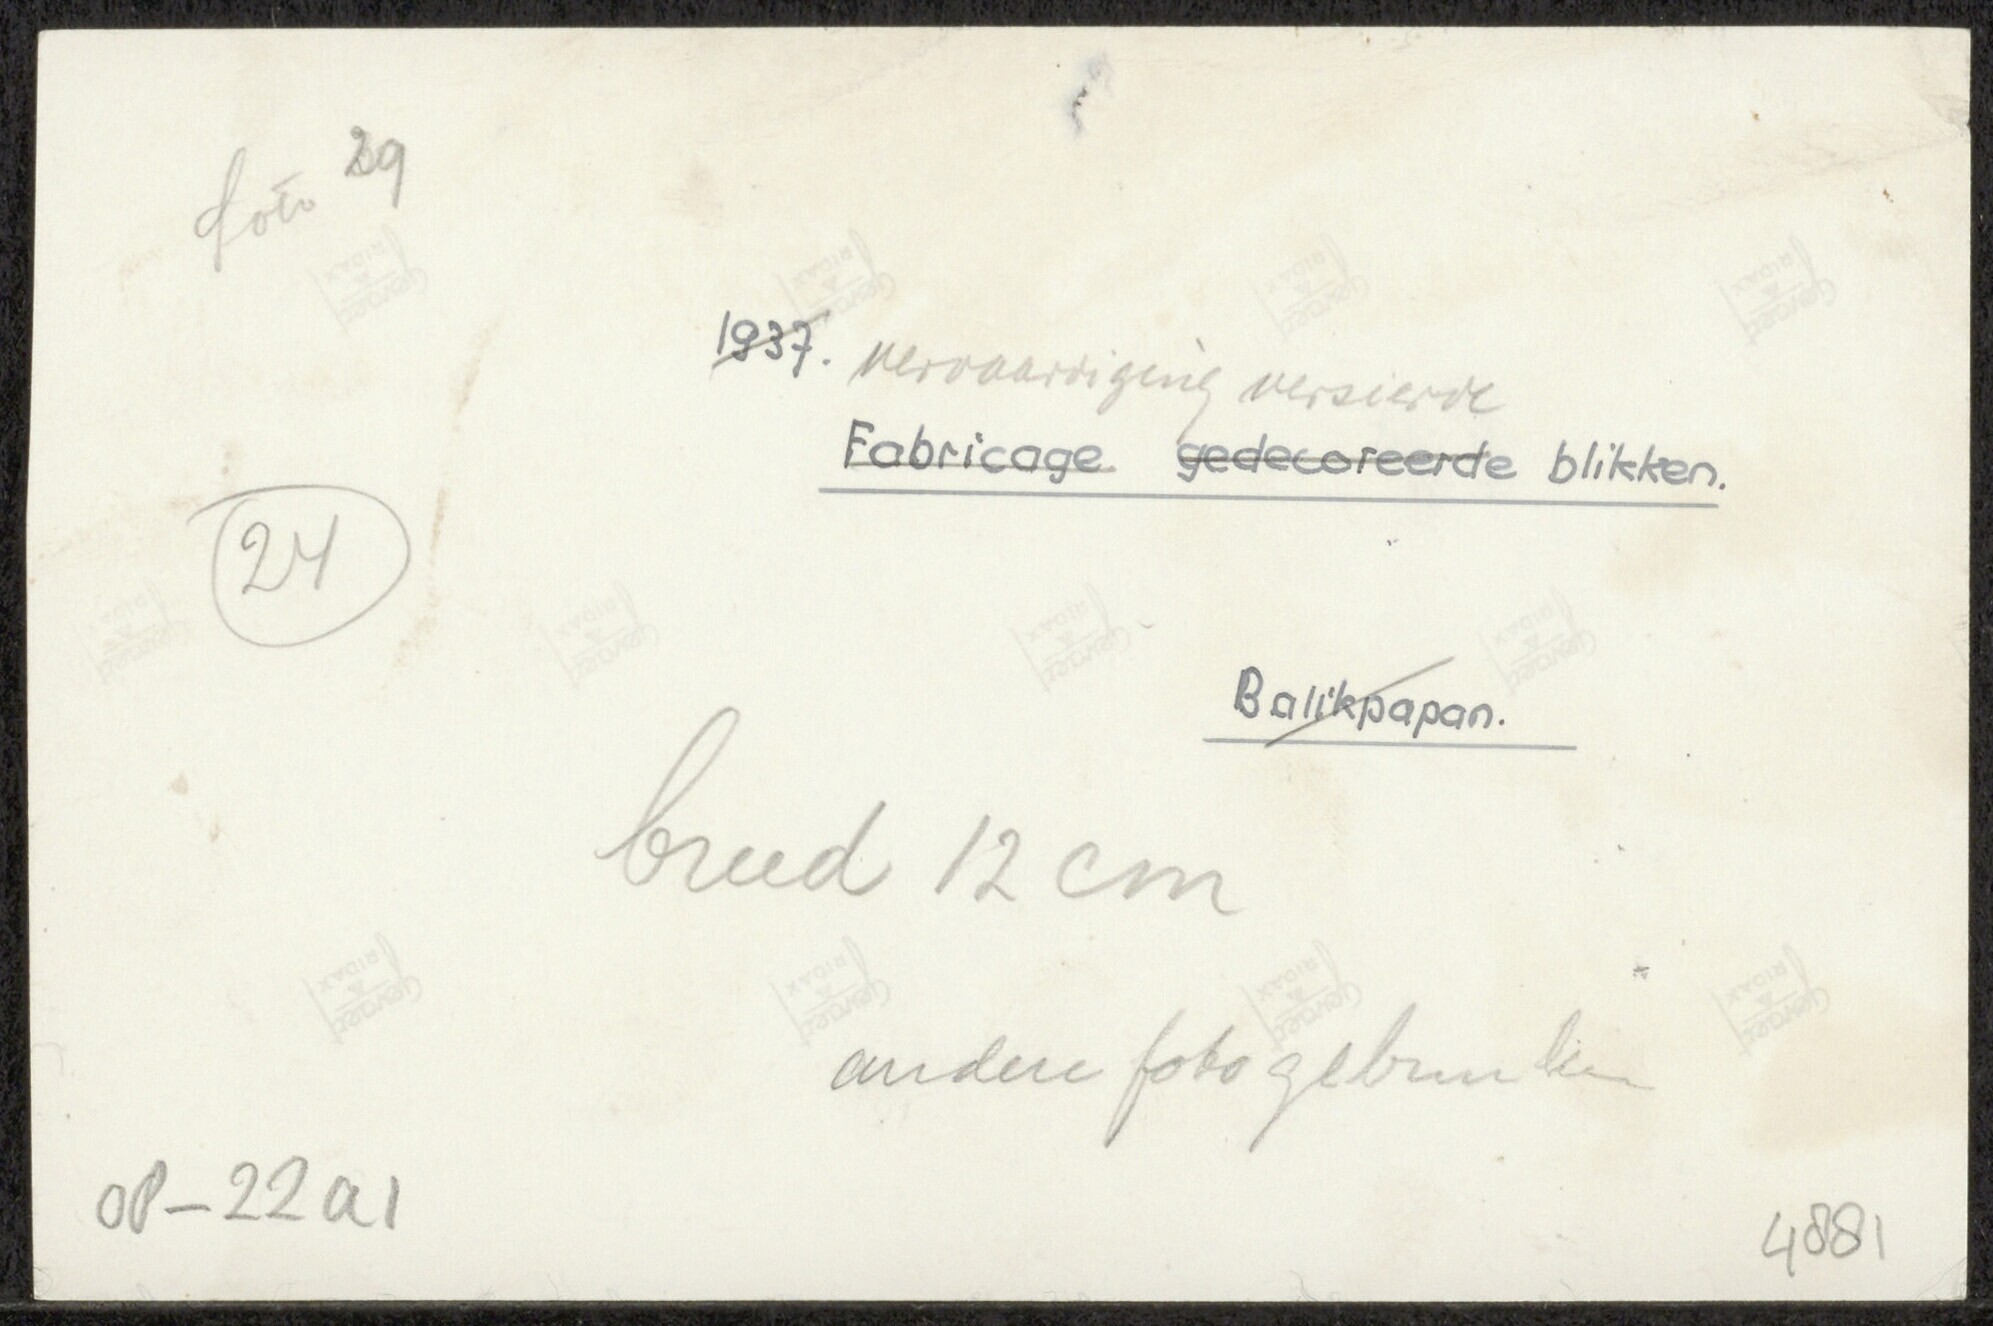 foto 29
1937. vervaardiging versierde
Fabricage gedecoreerde blikken.
24
Balikpapan.
breed 12 cm
andere foto gebruiken
OP-22a1
4881
Gevaert
RIDAX